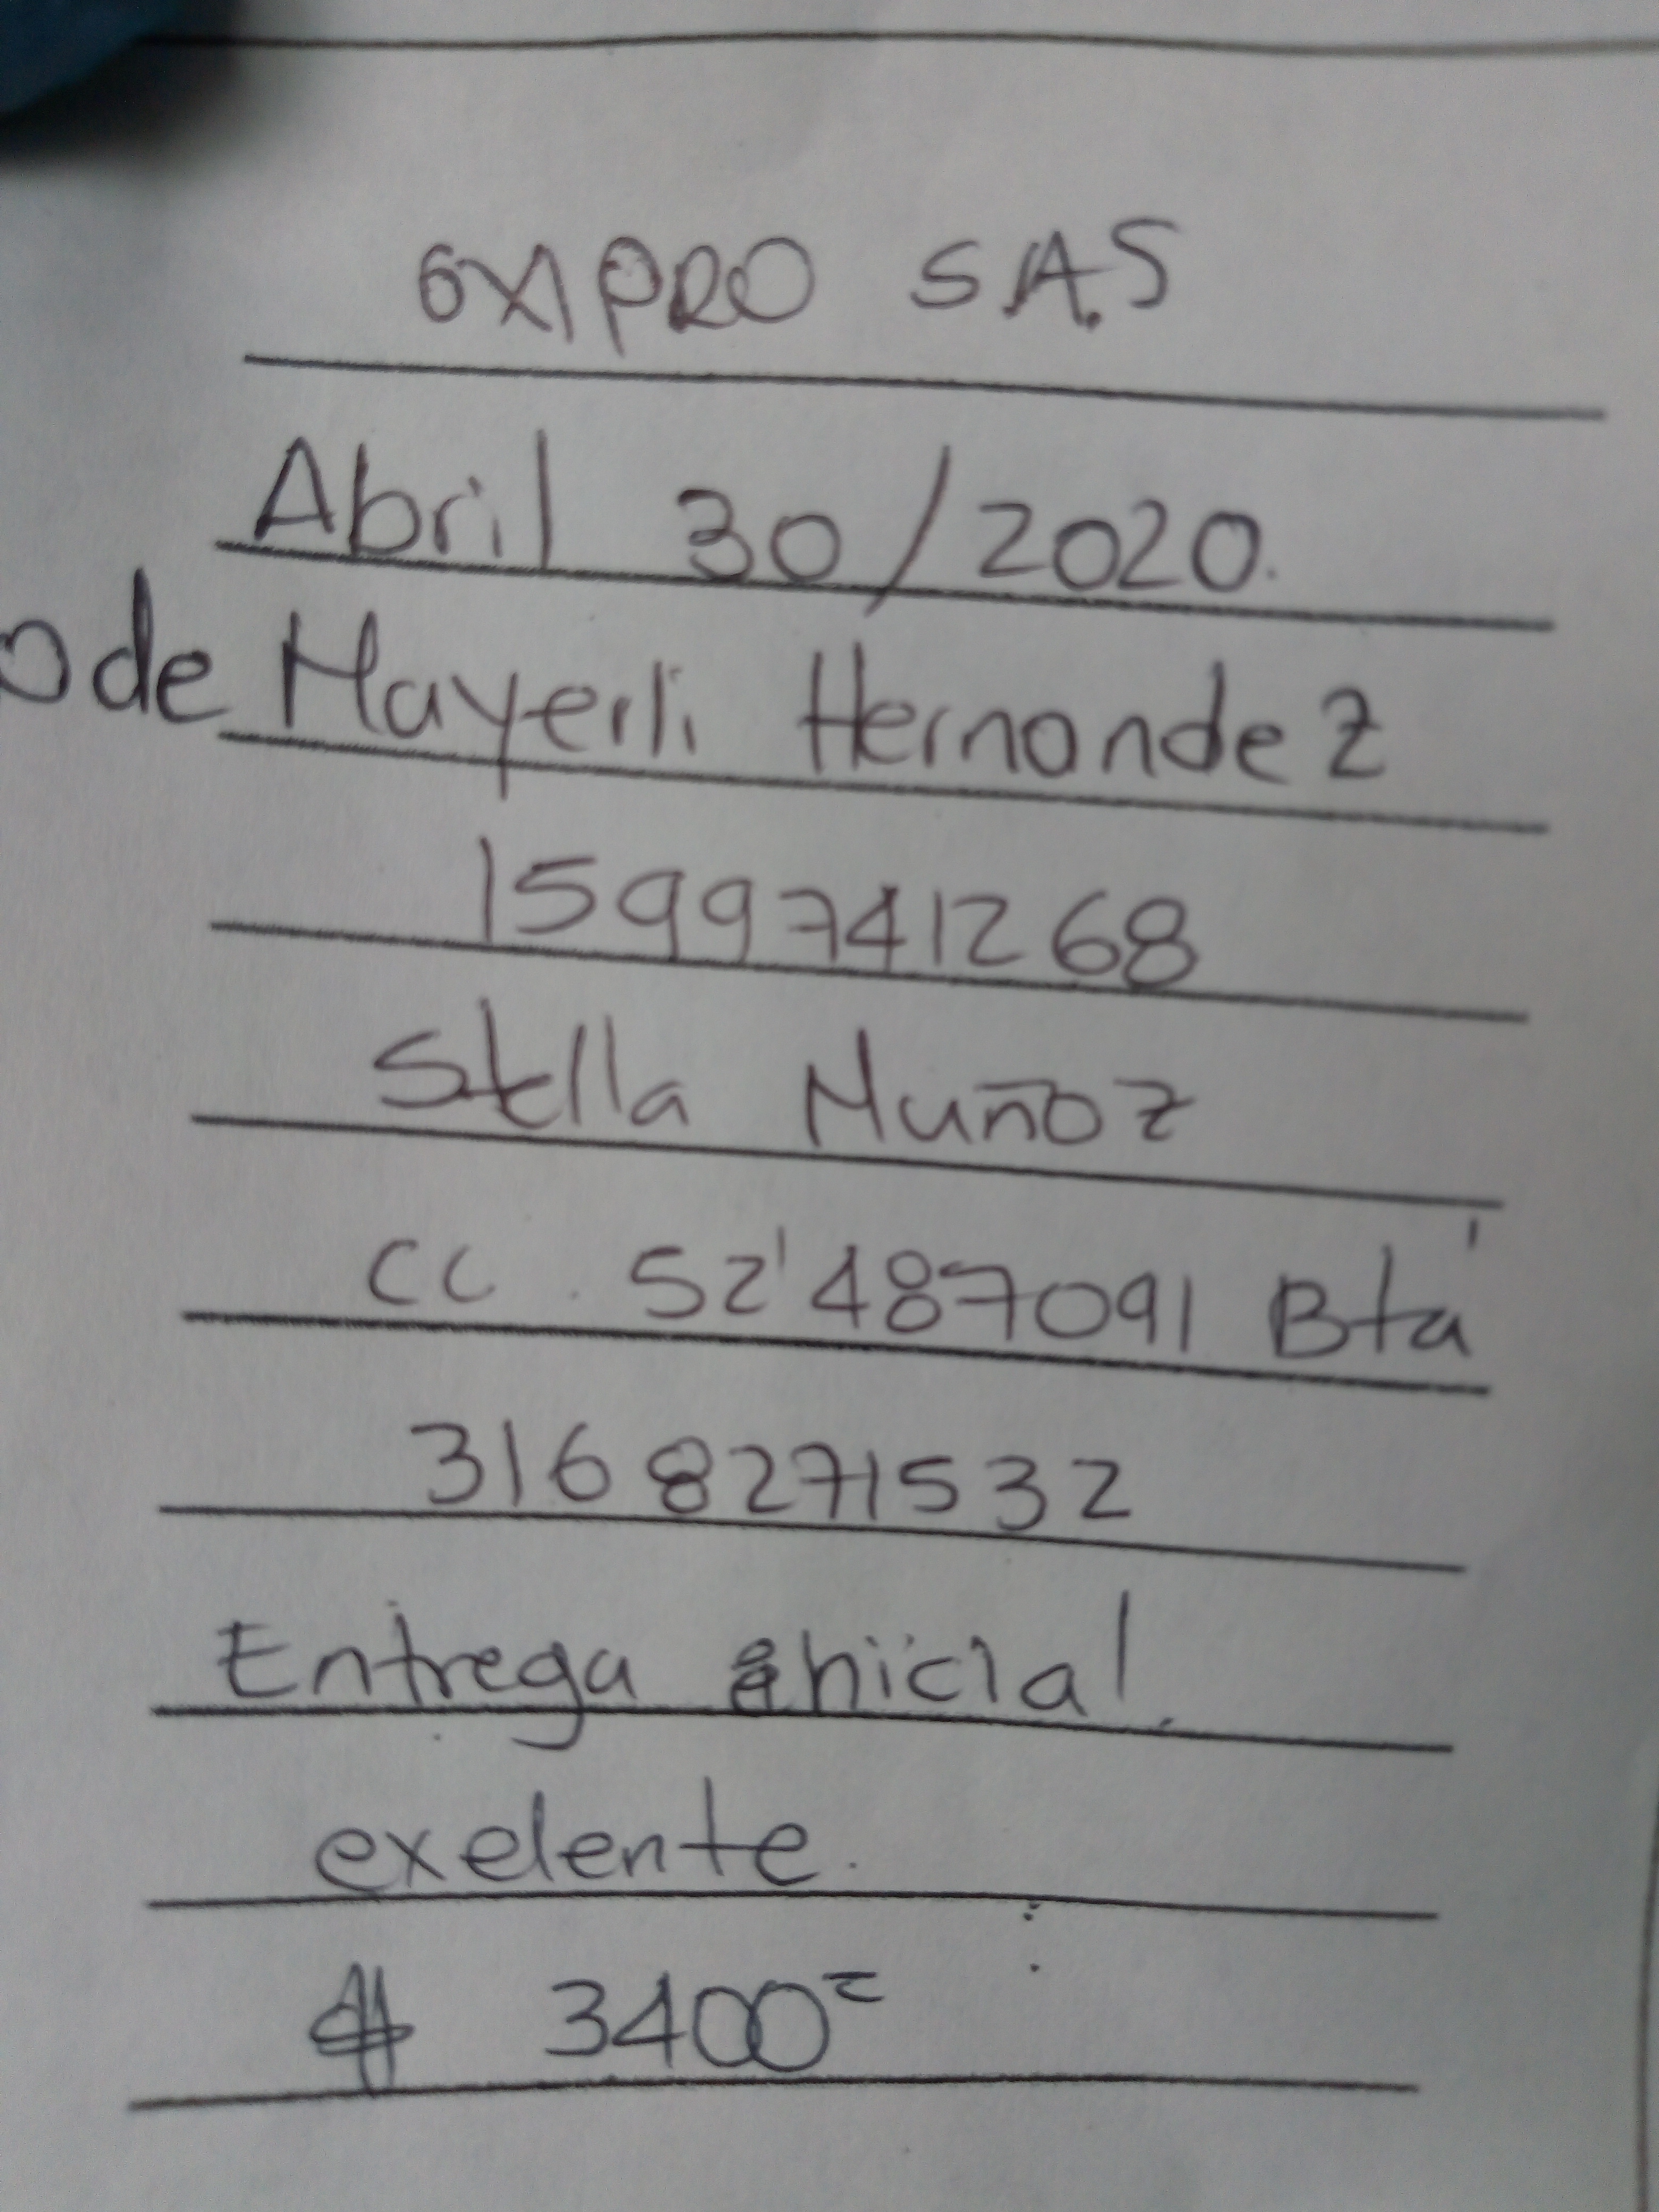 OXIPRO S.A.S
Abril 30/2020.
o de Mayerli Hernandez
1599741268
Stella Muñoz
CC. 52'487091 Btá
3168271532
Entrega inicial.
exelente.
$ 3400=